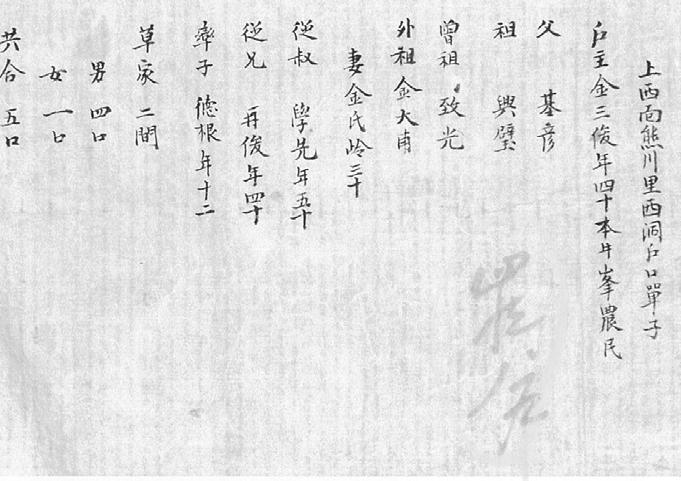 上西面熊川里西洞戶口單子
戶主金三俊年四十本牛峯農民
父 基彦
祖 興璧
曾祖 致光
外祖 金大甫
妻金氏岭三十
從叔 學先年五十
從兄 再俊年四十
率子 德根年十二
草家 二間
男 四口
女 一口
共合 五口